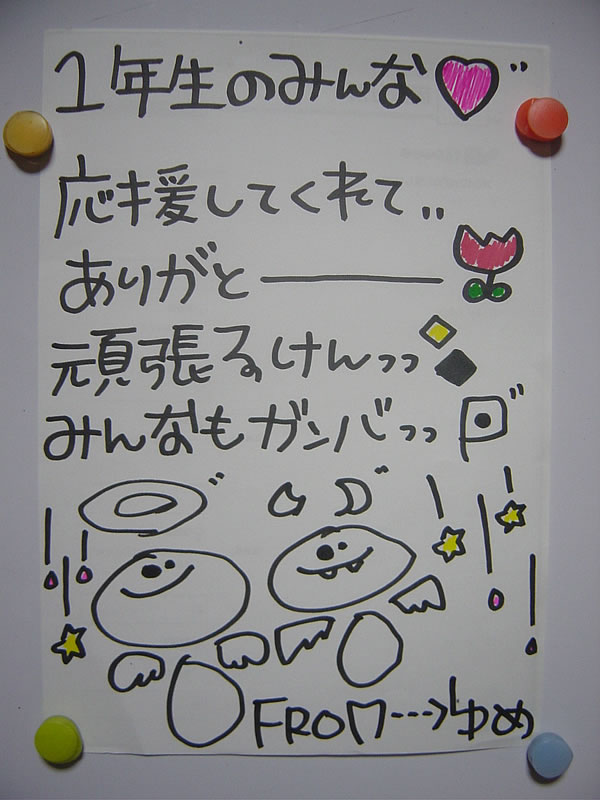 1年生のみんな
応援してくれて..
ありがとーーー
頑張るけんっっ
みんなもガンバっっ
FROM--->ゆめ